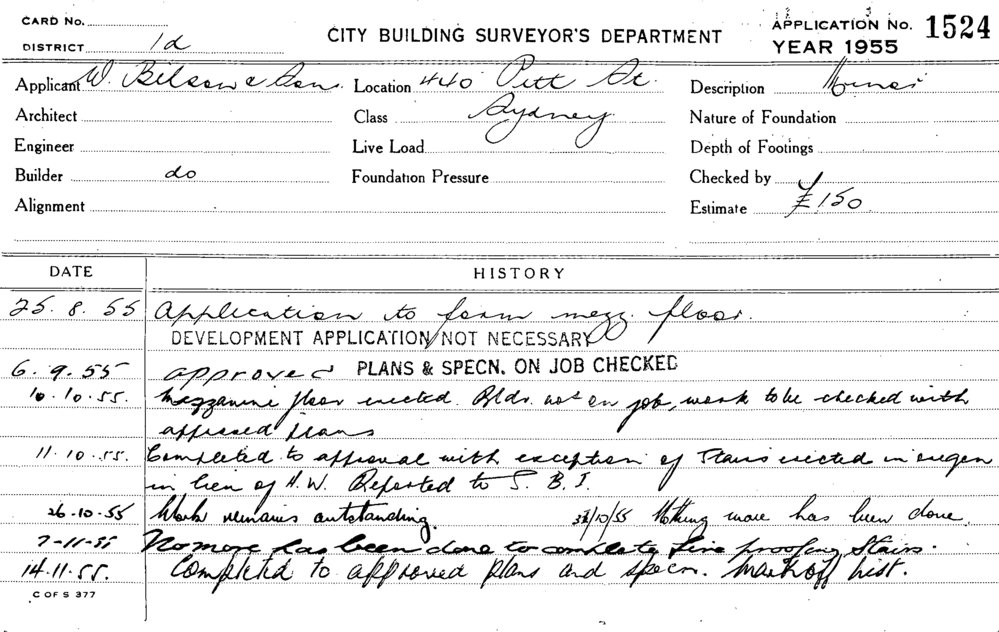 CARD No.
DISTRICT 1d
CITY BUILDING SURVEYOR'S DEPARTMENT
APPLICATION No. 1524
YEAR 1955
Applicant W. Bilson & Sons. Location 440 Pitt St. Description Minor
Architect Class Sydney Nature of Foundation
Engineer Live Load Depth of Footings
Builder do Foundation Pressure Checked by
Alignment Estimate £150
DATE HISTORY
25.8.55 Application to form mezz. floor.
DEVELOPMENT APPLICATION NOT NECESSARY
6.9.55 approved PLANS & SPECN. ON JOB CHECKED
10.10.55. Mezzanine floor erected. Bldr. not on job, work to be checked with
approved plans
11.10.55. Completed to approval with exception of Stairs erected in oregon
in lieu of H.W. Reported to S.B.I.
26.10.55 Work remains outstanding. 31/10/55 Nothing more has been done.
7-11-55 No more has been done to complete fire proofing Stairs.
14.11.55. Completed to approved plans and specn. Mark off hist.
C OF S 377